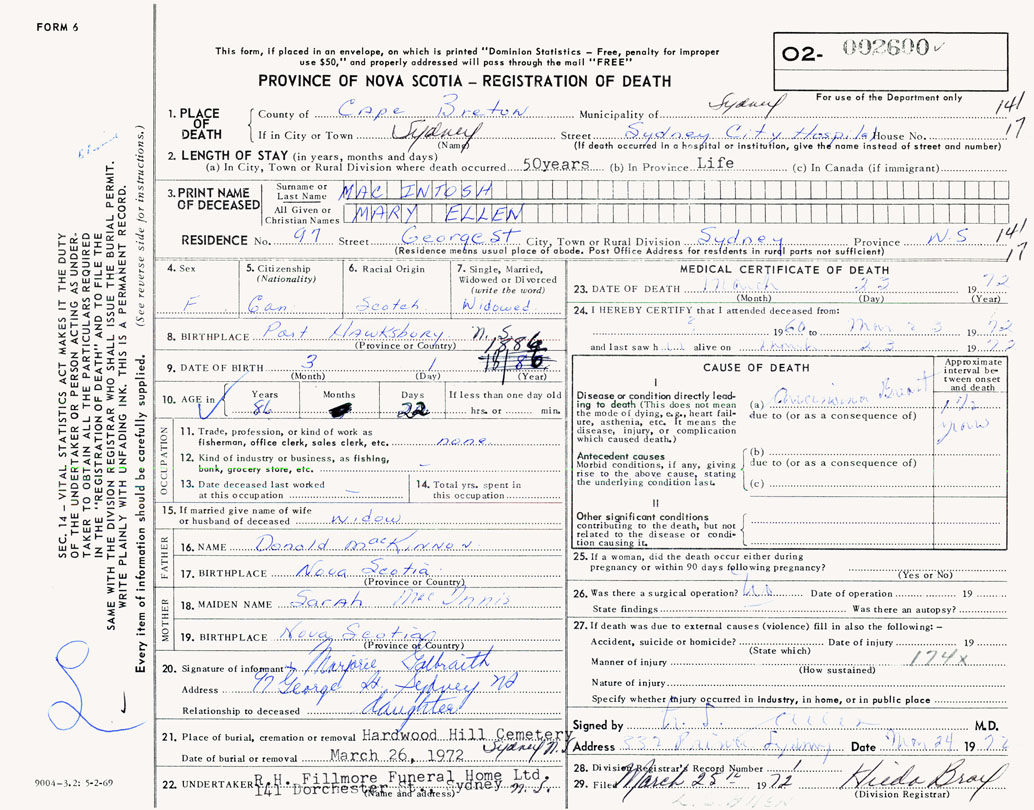 FORM 6
This form, if placed in an envelope, on which is printed "Dominion Statistics – Free, penalty for improper
use $50," and properly addressed will pass through the mail "FREE"
PROVINCE OF NOVA SCOTIA – REGISTRATION OF DEATH
O2- 002600
For use of the Department only
1. PLACE OF DEATH
County of Cape Breton Municipality of Sydney 141
If in City or Town Sydney Street Sydney City Hospital House No. 17
(Name) (If death occurred in a hospital or institution, give the name instead of street and number)
2. LENGTH OF STAY (in years, months and days)
(a) In City, Town or Rural Division where death occurred 50years (b) In Province Life (c) In Canada (if immigrant)
3. PRINT NAME OF DECEASED
Surname or Last Name MAC INTOSH
All Given or Christian Names MARY ELLEN
RESIDENCE No. 97 Street George St City, Town or Rural Division Sydney Province N.S 141
(Residence means usual place of abode. Post Office Address for residents in rural parts not sufficient) 17
4. Sex F
5. Citizenship (Nationality) Can
6. Racial Origin Scotch
7. Single, Married, Widowed or Divorced (write the word) Widowed
8. BIRTHPLACE Port Hawksbury N.S
(Province or Country)
9. DATE OF BIRTH 3 1 1886
(Month) (Day) (Year)
10. AGE in Years 86 Months Days 22 If less than one day old hrs. or min.
OCCUPATION
11. Trade, profession, or kind of work as
fisherman, office clerk, sales clerk, etc. none
12. Kind of industry or business, as fishing,
bank, grocery store, etc. –
13. Date deceased last worked
at this occupation –
14. Total yrs. spent in
this occupation
15. If married give name of wife
or husband of deceased widow
FATHER
16. NAME Donald MacKinnon
17. BIRTHPLACE Nova Scotia
(Province or Country)
MOTHER
18. MAIDEN NAME Sarah MacInnis
19. BIRTHPLACE Nova Scotia
(Province or Country)
20. Signature of informant x Marjorie Galbraith
Address 97 George St Sydney NS
Relationship to deceased daughter
21. Place of burial, cremation or removal Hardwood Hill Cemetery
Sydney N.S
Date of burial or removal March 26, 1972
22. UNDERTAKER R.H. Fillmore Funeral Home Ltd.
141 Dorchester St., Sydney N.S.
(Name and address)
MEDICAL CERTIFICATE OF DEATH
23. DATE OF DEATH March 23 1972
(Month) (Day) (Year)
24. I HEREBY CERTIFY that I attended deceased from:
1960 to Mar 23 1972
and last saw h alive on March 23 1972
CAUSE OF DEATH
Approximate interval between onset and death
I
Disease or condition directly lead-
ing to death (This does not mean
the mode of dying, e.g., heart fail-
ure, asthenia, etc. It means the
disease, injury, or complication
which caused death.)
(a) Carcinoma Breast
due to (or as a consequence of)
1½ years
Antecedent causes
Morbid conditions, if any, giving
rise to the above cause, stating
the underlying condition last.
(b)
due to (or as a consequence of)
(c)
II
Other significant conditions
contributing to the death, but not
related to the disease or condi-
tion causing it.
25. If a woman, did the death occur either during
pregnancy or within 90 days following pregnancy?
(Yes or No)
26. Was there a surgical operation? No Date of operation 19
State findings Was there an autopsy?
27. If death was due to external causes (violence) fill in also the following: –
Accident, suicide or homicide? Date of injury 19
(State which)
Manner of injury 174x
(How sustained)
Nature of injury
Specify whether injury occurred in industry, in home, or in public place
Signed by M.D.
Address Sydney Date Mar 24 1972
28. Division Registrar's Record Number
29. Filed March 25th 1972
(Division Registrar)
SEC. 14 – VITAL STATISTICS ACT MAKES IT THE DUTY
OF THE UNDERTAKER OR PERSON ACTING AS UNDER-
TAKER TO OBTAIN ALL THE PARTICULARS REQUIRED
IN THE "REGISTRATION OF DEATH" AND TO FILE THE
SAME WITH THE DIVISION REGISTRAR WHO SHALL ISSUE THE BURIAL PERMIT.
WRITE PLAINLY WITH UNFADING INK. THIS IS A PERMANENT RECORD.
Every item of information should be carefully supplied. (See reverse side for instructions.)
9004-3.2: 5-2-69